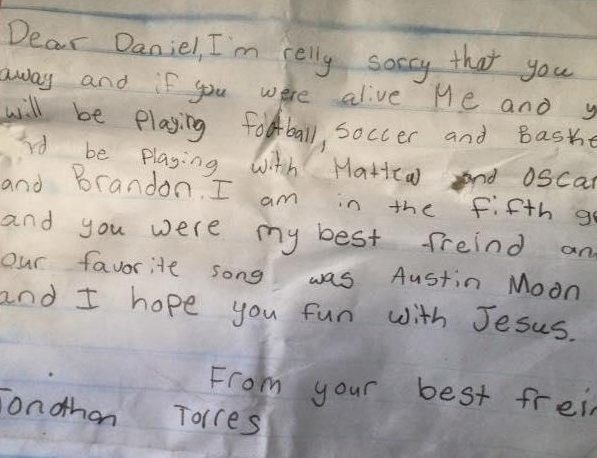 Dear Daniel, I'm relly sorry that you
away and if you were alive Me and y
will be Playing football, Soccer and Baske
be Playing with Mattew and Oscar
and Brandon. I am in the fifth g
and you were my best freind an
our favorite song was Austin Moon
and I hope you fun with Jesus.
From your best frein
Jonathan Torres